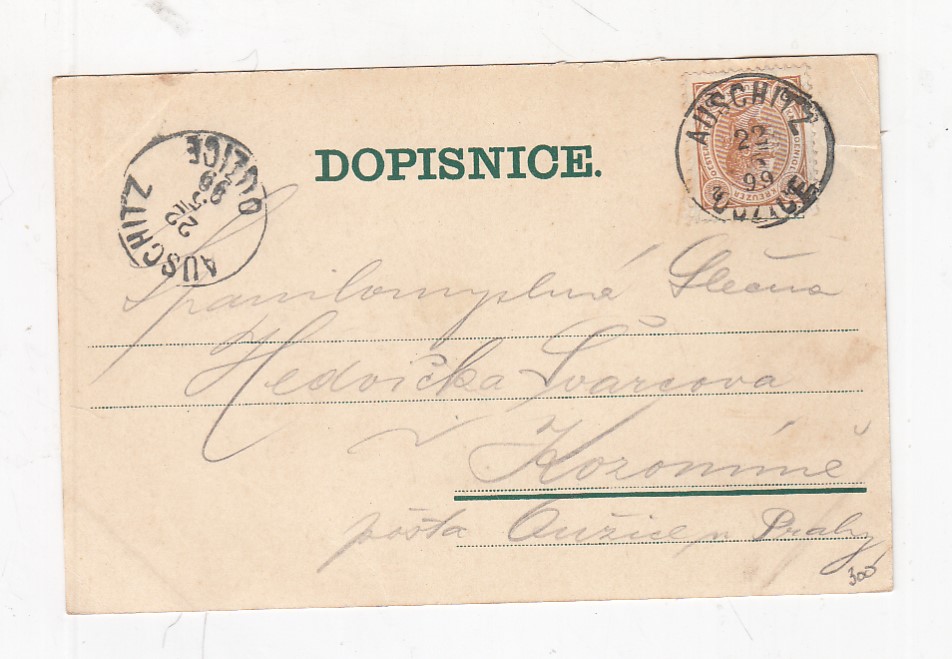 DOPISNICE.
AUSCHITZ
22
99
OUŽICE
AUSCHITZ
22
99
OUŽICE
KREUZER
Slečna
Hedvička Švarcova
v Kozomíně
pošta Oužice u Prahy
300